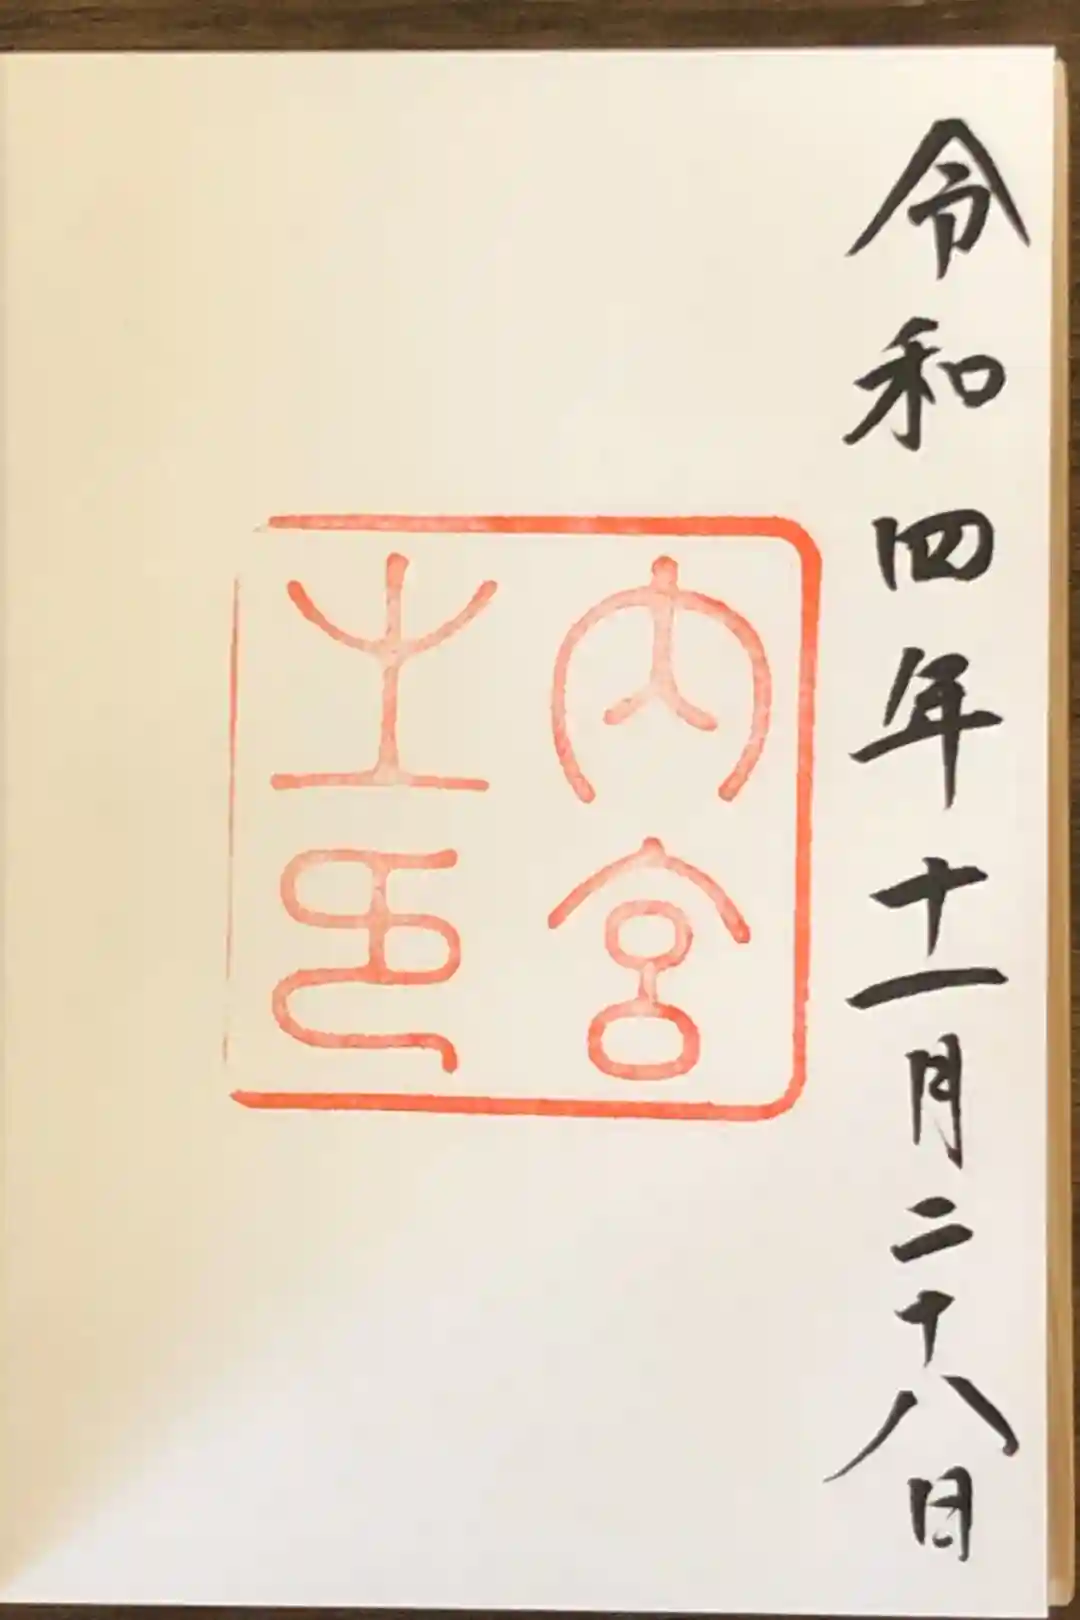 令和四年十一月二十八日
内宮
之印